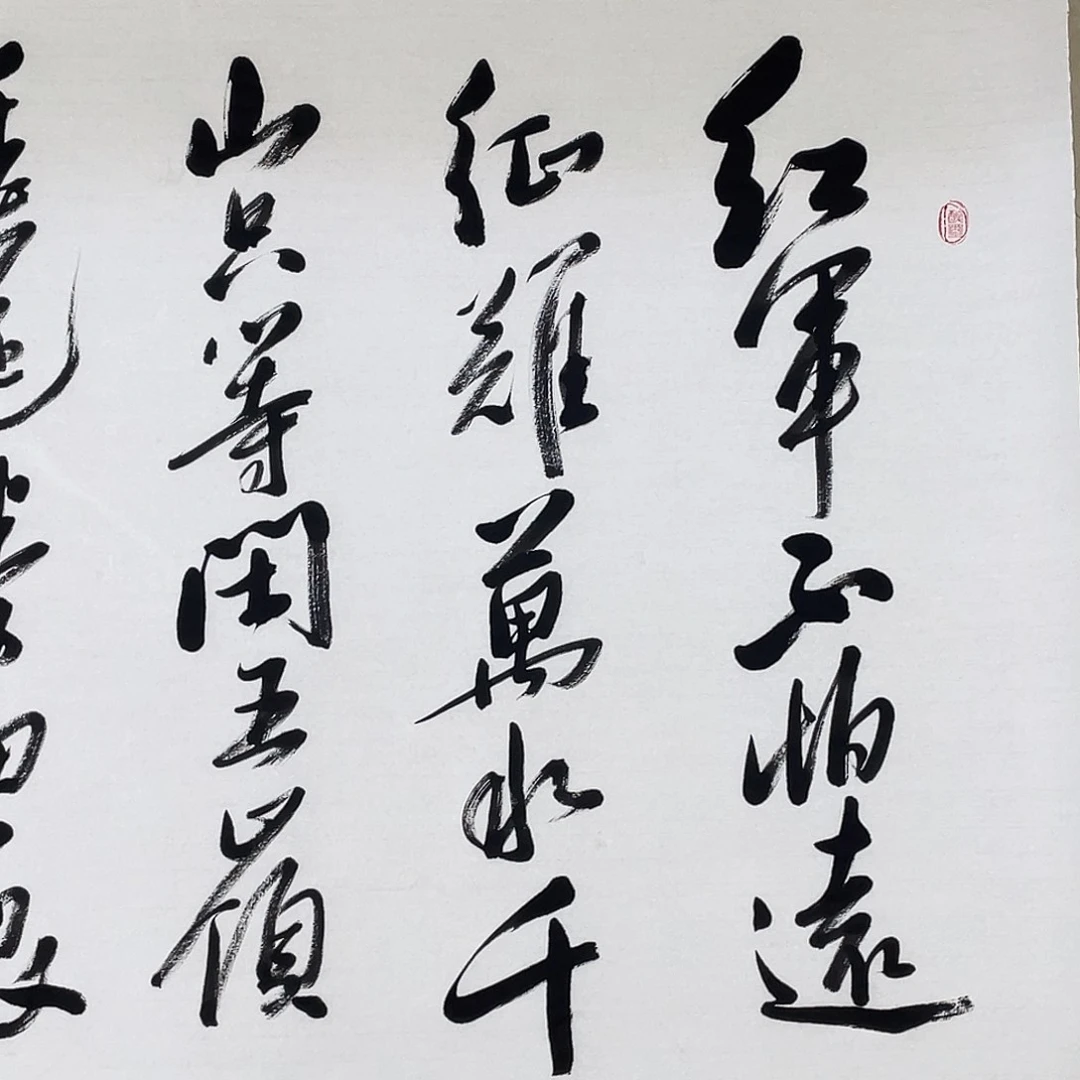 紅軍不怕遠
征難萬水千
山只等閑五嶺